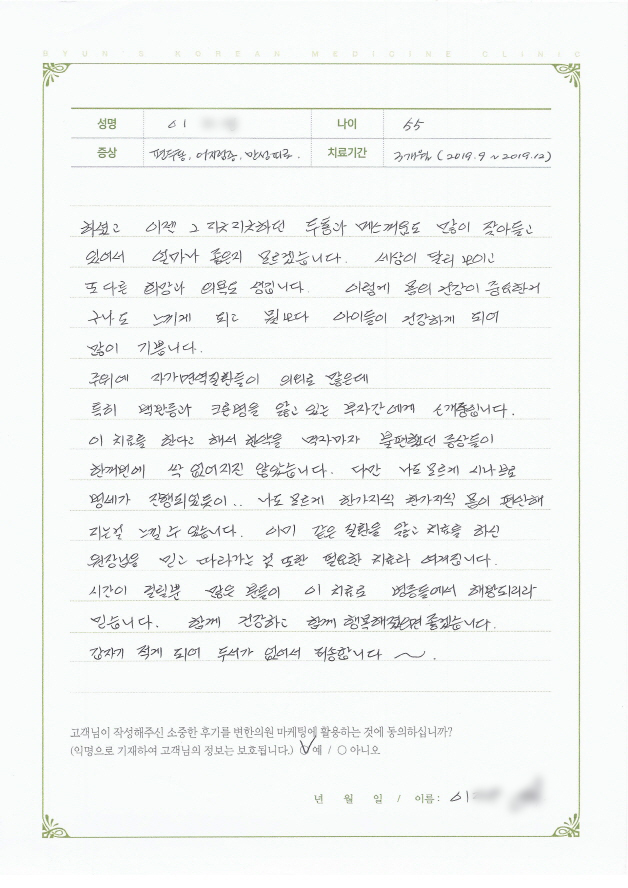 BYUN'S KOREAN MEDICINE CLINIC
성명 이 나이 55
증상 편두통, 어지럼증, 만성피로. 치료기간 3개월 (2019.9 ~ 2019.12)
하셨고 이젠 그 지긋지긋하던 두통과 메스꺼움도 많이 잦아들고
있어서 얼마나 좋은지 모르겠습니다. 세상이 달리 보이고
또 다른 희망과 의욕도 생깁니다. 이렇게 몸의 건강이 중요한거
구나도 느끼게 되고 뭣보다 아이들이 건강하게 되어
많이 기쁩니다.
주위에 자가면역질환들이 의외로 많은데
특히 백반증과 크론병을 앓고 있는 부자간에게 소개중입니다.
이 치료를 한다고 해서 한약을 먹자마자 불편했던 증상들이
한꺼번에 싹 없어지진 않았습니다. 다만 나도 모르게 시나브로
병세가 진행되었듯이.. 나도 모르게 한가지씩 한가지씩 몸이 편안해
지는걸 느낄 수 있습니다. 이미 같은 질환을 앓고 치료를 하신
원장님을 믿고 따라가는 것 또한 필요한 치료라 여겨집니다.
시간이 걸릴뿐 많은 분들이 이 치료로 병증들에서 해방되리라
믿습니다. 함께 건강하고 함께 행복해졌으면 좋겠습니다.
갑자기 적게 되어 두서가 없어서 죄송합니다 ~.
고객님이 작성해주신 소중한 후기를 변한의원 마케팅에 활용하는 것에 동의하십니까?
(익명으로 기재하여 고객님의 정보는 보호됩니다.) ○ 예 / ○ 아니오
년 월 일 / 이름 : 이